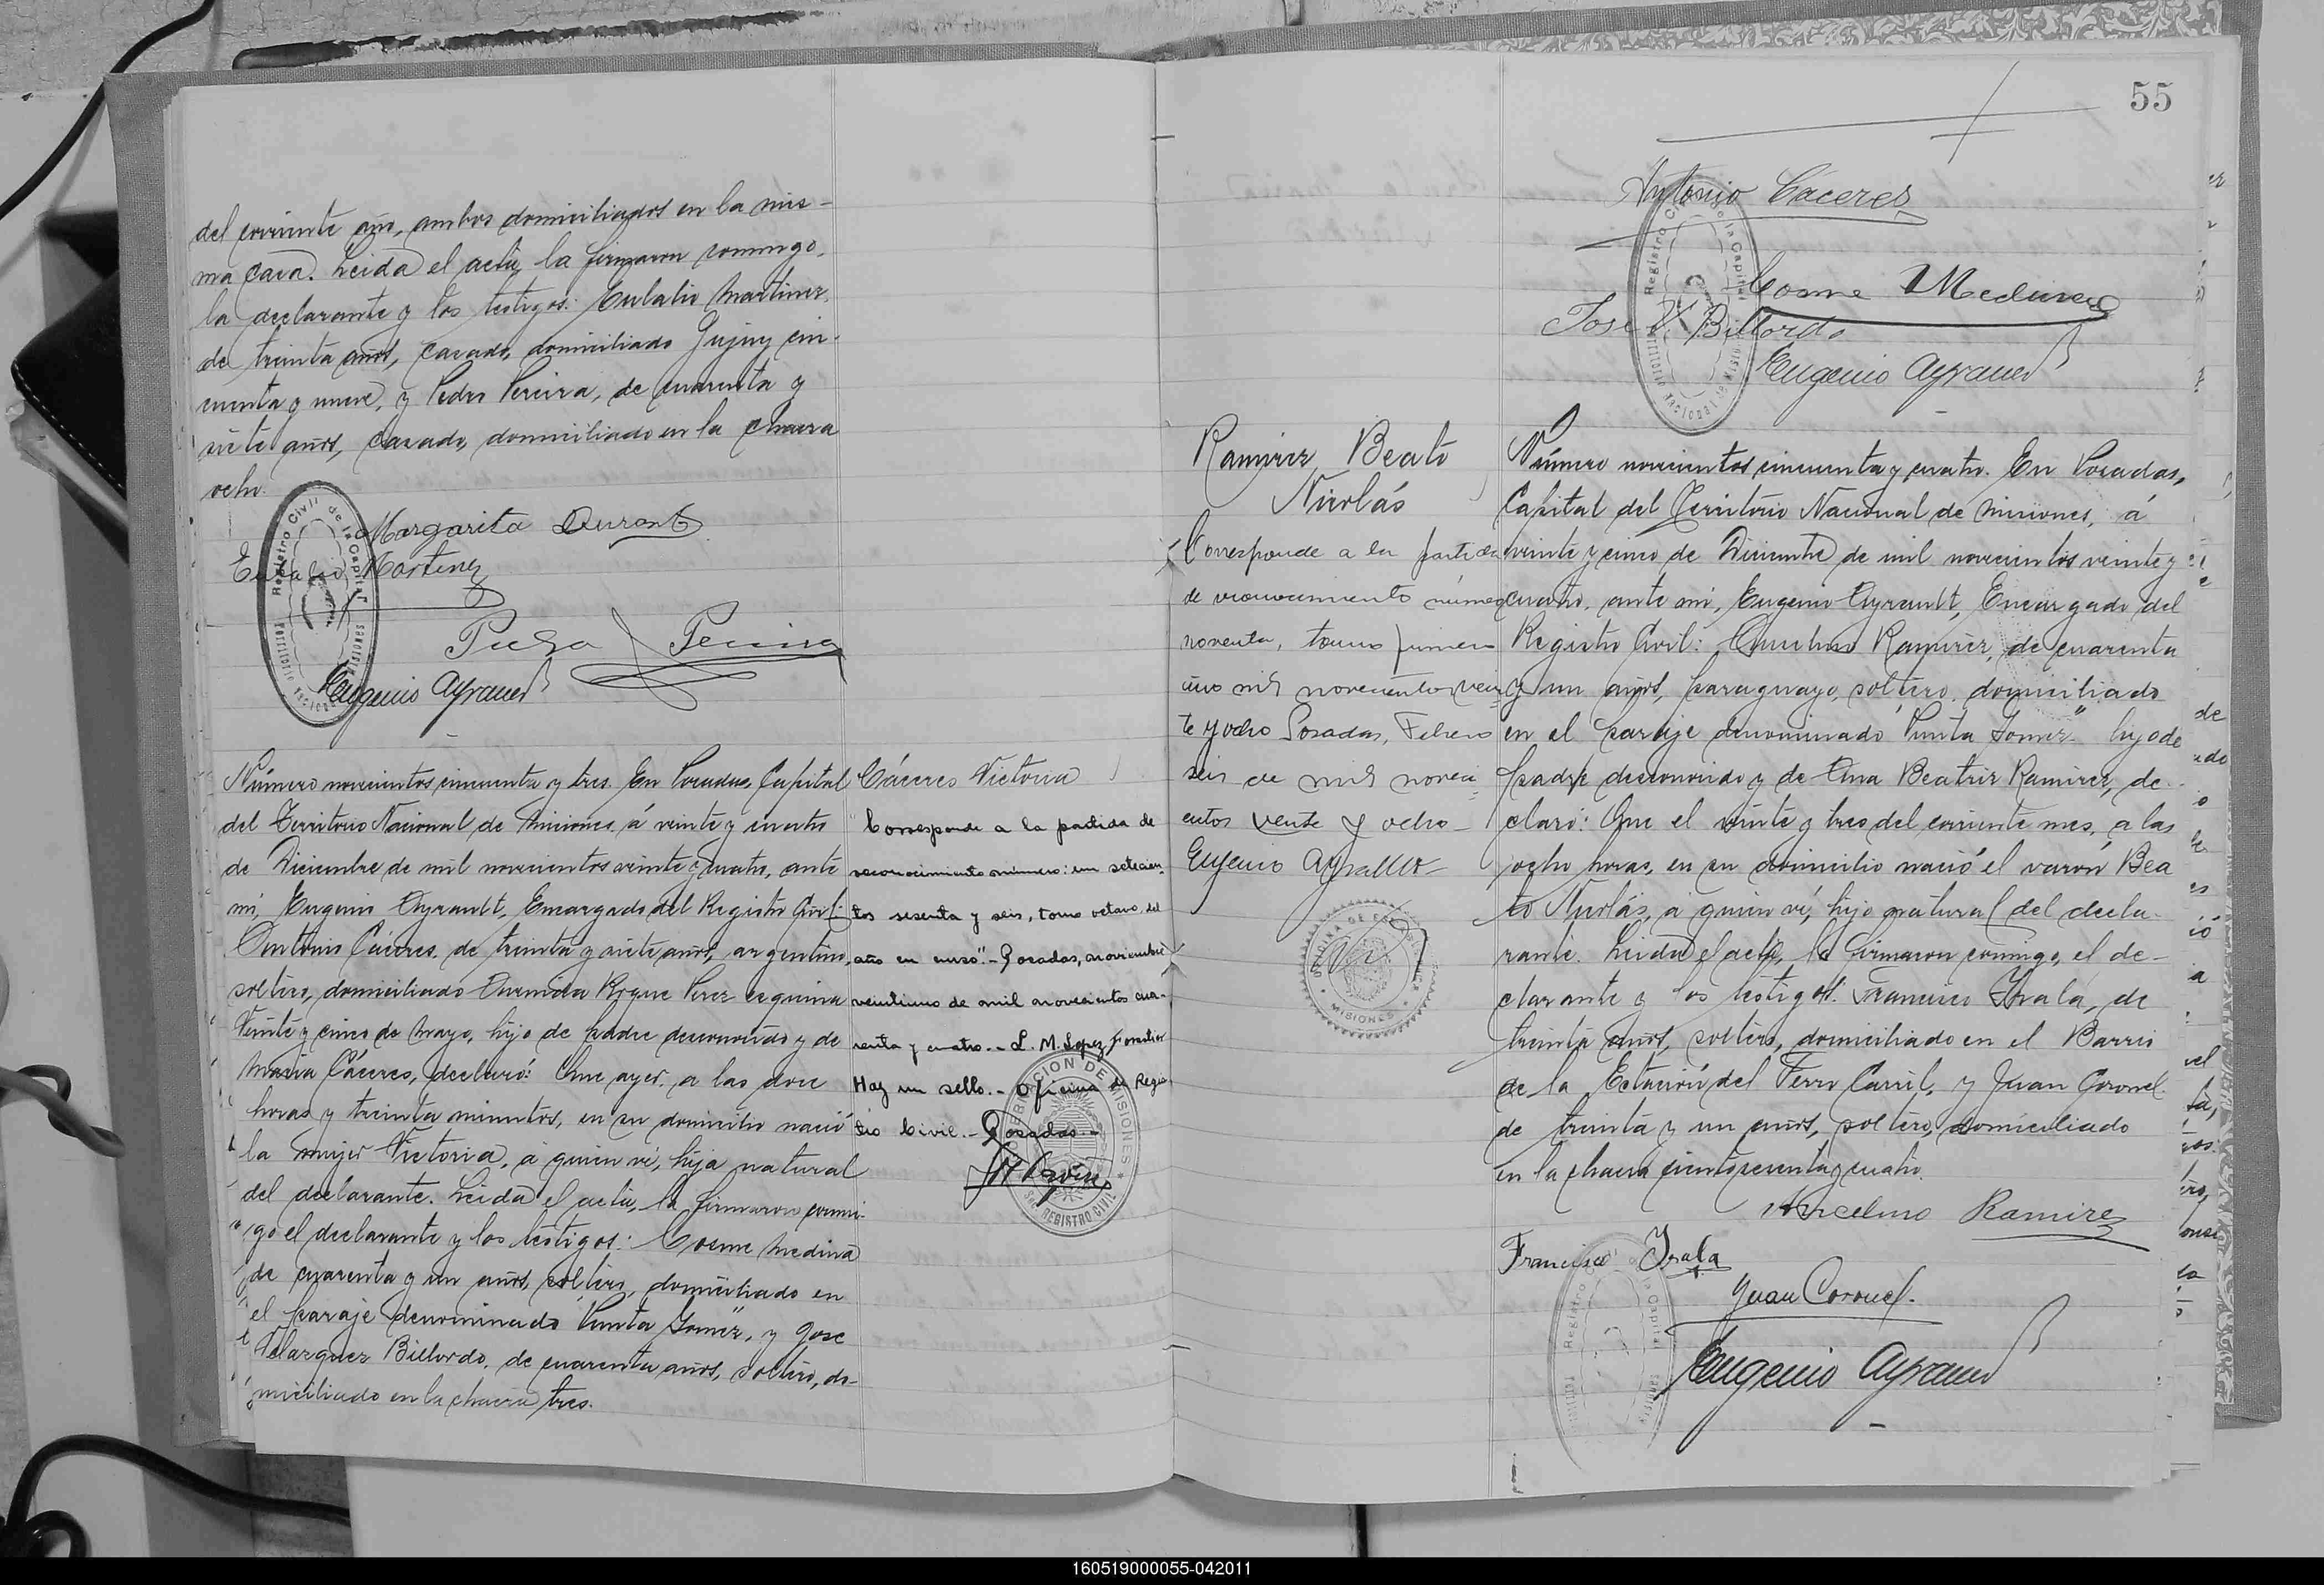 del corriente año, ambos domiciliados en la mis-
ma casa. Leida el acta, la firmaron conmigo,
la declarante y los testigos: Eulalio Martinez,
de treinta años, casado, domiciliado Jujuy cin-
cuenta y nueve, y Pedro Pereira, de cuarenta y
siete años, casado, domiciliado en la chacra
ocho.
Margarita Durant
Eulalio Martinez
Pedro Pereira
Eugenio Ayrault
Registro Civil de la Capital
Territorio Nacional Misiones
Número novecientos cincuenta y tres. En Posadas, Capital
del Territorio Nacional de Misiones, á veinte y cuatro
de Diciembre de mil novecientos veinte y cuatro, ante
mi, Eugenio Ayrault, Encargado del Registro Civil:
Antonio Cáceres, de treinta y siete años, argentino,
soltero, domiciliado Avenida Roque Perez esquina
Veinte y cinco de Mayo, hijo de padre desconocido y de
Maria Cáceres, declaró: Que ayer, a las doce
horas y treinta minutos, en su domicilio nació
la mujer Victoria, á quien ví, hija natural
del declarante. Leida el acta, la firmaron conmi-
go el declarante y los testigos: Cosme Medina
de cuarenta y un años, soltero, domiciliado en
el paraje denominado "Punta Gomez", y José
Velazquez Billordo, de cuarenta años, soltero, do-
miciliado en la chacra tres.
Cáceres Victoria
"Corresponde a la partida de
reconocimiento número: un setecien-
tos sesenta y seis, tomo octavo, del
año en curso".- Posadas, noviembre
veintiuno de mil novecientos cua-
renta y cuatro.- L. M. Lopez Forastier
Hay un sello.- Oficina de Regis-
tro Civil.- Posadas.-
GOBERNACION DE MISIONES
REGISTRO CIVIL
55
Antonio Cáceres
Cosme Medina
José V. Billordo
Eugenio Ayrault
Registro Civil de la Capital
Territorio Nacional Misiones
Ramirez Beato
Nicolás
Corresponde a la partida
de reconocimiento número
noventa, tomo primero
año mil novecientos vein-
te y ocho Posadas, Febrero
seis de mil noveci-
entos veinte y ocho-
Eugenio Ayrault
MISIONES
Número novecientos cincuenta y cuatro. En Posadas,
Capital del Territorio Nacional de Misiones, á
veinte y cinco de Diciembre de mil novecientos veinte y
cuatro, ante mi, Eugenio Ayrault, Encargado del
Registro Civil: Anselmo Ramirez, de cuarenta
y un años, paraguayo, soltero, domiciliado
en el paraje denominado "Punta Gomez" hijo de
padre desconocido y de Ana Beatriz Ramirez, de-
claró: Que el veinte y tres del corriente mes, a las
ocho horas, en su domicilio nació el varón Bea
to Nicolás, a quien ví, hijo natural del decla-
rante. Leida el acta, la firmaron conmigo, el de-
clarante y los testigos: Francisco Irala, de
treinta años, soltero, domiciliado en el Barrio
de la Estación del Ferro Carril, y Juan Coronel
de treinta y un años, soltero, domiciliado
en la chacra ciento sesenta y cuatro.
Anselmo Ramirez
Francisco Irala
Juan Coronel.
Eugenio Ayrault
160519000055-042011